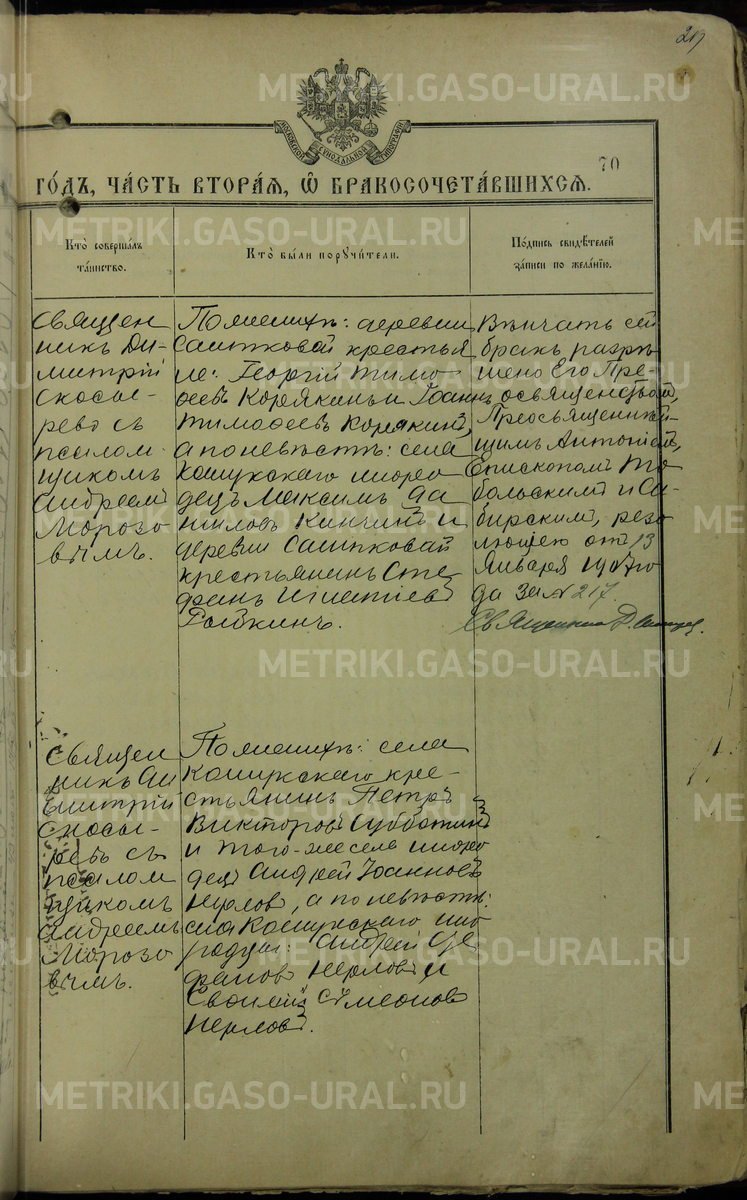 219
МОСКОВСКОЙ СѴНОДАЛЬНОЙ ТИПОГРАФІИ
70
ГО́ДЪ, ЧА́СТЬ ВТОРА́Я, Ѿ БРАКОСОЧЕТА́ВШИХСЯ.
Кто̀ соверша́лъ
та́инство.
Кто̀ бы́ли порꙋчи́тели.
По́дпись свидѣ́телей
за́писи по жела́нїю.
Священ
никъ Ди-
митрій
Сносы-
ревъ съ
псалом-
щикомъ
Андреемъ
Морозо-
вымъ.
По женихѣ: деревни
Саитковой крестья
не: Георгій Тимо
феевъ Корякинъ и Іоаннъ
Тимофеевъ Корякинъ,
а по невѣстѣ: села
Кошукскаго иноро
децъ Максимъ Да
ниловъ Кинчинъ и
деревни Саитковой
крестьянинъ Сте
фанъ Игнатіевъ
Вѣнчать сей
бракъ разрѣ
шено Его Пре-
освященствомъ,
Преосвященнѣй-
шимъ Антоніемъ,
Епископомъ То
больскимъ и Си-
бирскимъ, резо
люціею отъ 13
Января 1907 го
да за № 217.
Священникъ Д.
Священ
никъ Ди
митрій
Сносы-
ревъ съ
псалом
щикомъ
Андреемъ
Морозо
вымъ.
По женихѣ: села
Кошукскаго кре-
стьянинъ Петръ
Викторовъ Субботинъ
и того-же села иноро
децъ Андрей Іоанновъ
Нерловъ, а по невѣстѣ:
села Кошукскаго ино
родцы: Андрей Сте
фановъ Нерловъ и
Симеоновъ
Нерловъ.
METRIKI.GASO-URAL.RU